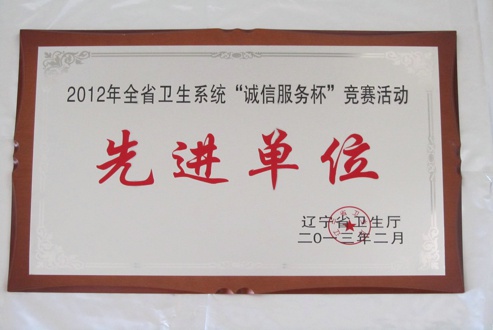 2012年全省卫生系统“诚信服务杯”竞赛活动
先进单位
辽宁省卫生厅
二〇一三年二月